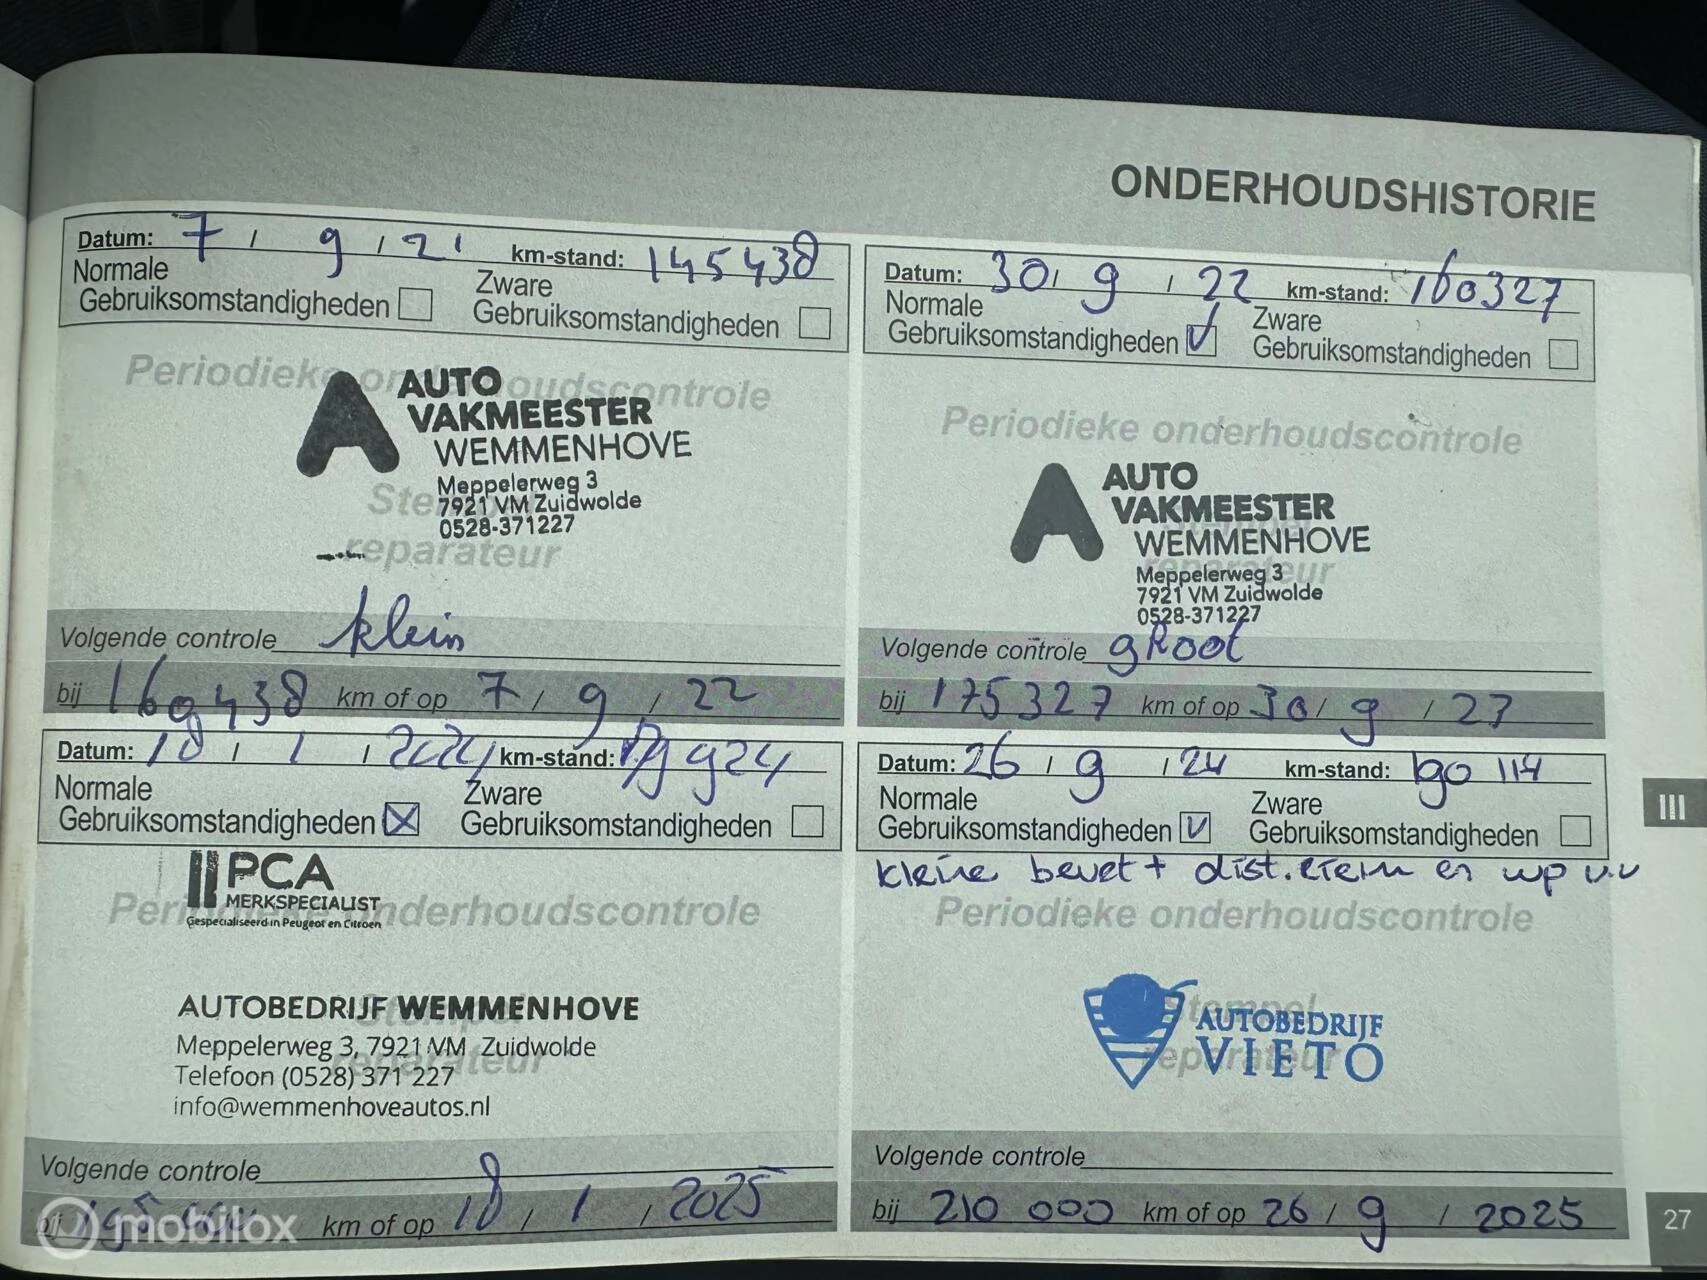 ONDERHOUDSHISTORIE
Datum: 7 / 9 / 21 km-stand: 145438
Normale Gebruiksomstandigheden Zware Gebruiksomstandigheden
Periodieke onderhoudscontrole
AUTO
VAKMEESTER
WEMMENHOVE
Meppelerweg 3
7921 VM Zuidwolde
0528-371227
Stempel
reparateur
Volgende controle klein
bij 169438 km of op 7 / 9 / 22
Datum: 30 / 9 / 22 km-stand: 160327
Normale Gebruiksomstandigheden Zware Gebruiksomstandigheden
Periodieke onderhoudscontrole
AUTO
VAKMEESTER
WEMMENHOVE
Stempel
reparateur
Meppelerweg 3
7921 VM Zuidwolde
0528-371227
Volgende controle gRoot
bij 175327 km of op 30 / 9 / 23
Datum: 18 / 1 / 2024 km-stand:
Normale Gebruiksomstandigheden Zware Gebruiksomstandigheden
PCA
MERKSPECIALIST
Gespecialiseerd in Peugeot en Citroen
Periodieke onderhoudscontrole
AUTOBEDRIJF WEMMENHOVE
Stempel
Meppelerweg 3, 7921 VM Zuidwolde
reparateur
Telefoon (0528) 371 227
info@wemmenhoveautos.nl
Volgende controle
bij km of op 18 / 1 / 2025
Datum: 26 / 9 / 24 km-stand: 190 114
Normale Gebruiksomstandigheden Zware Gebruiksomstandigheden
kleine beurt + dist. riem en wp v.v
Periodieke onderhoudscontrole
Stempel
reparateur
AUTOBEDRIJF
VIETO
Volgende controle
bij 210 000 km of op 26 / 9 / 2025
III
27
mobilox